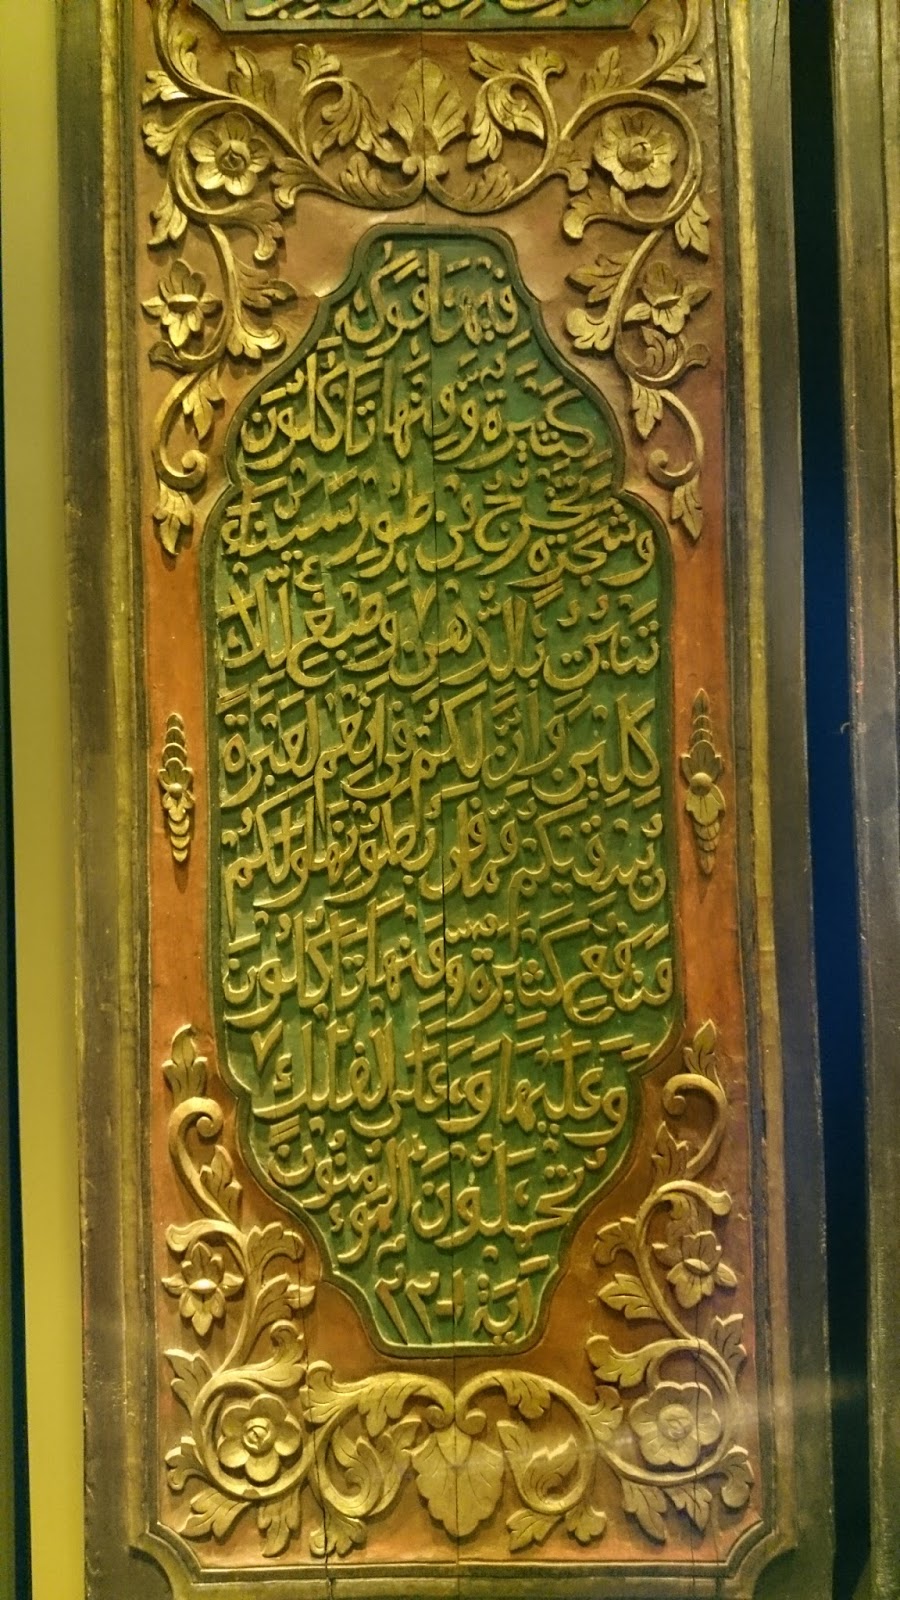 فِيهَا فَوٰكِهُ
كَثِيرَةٌ وَّمِنْهَا تَأْكُلُوْنَ
وَشَجَرَةً تَخْرُجُ مِنْ طُوْرِ سَيْنَآءَ
تَنْبُتُ بِالدُّهْنِ وَصِبْغٍ لِّلْاٰ
كِلِيْنَ وَاِنَّ لَكُمْ فِى انْعٰمِ لَعِبْرَةً
نُسْقِيْكُمْ مِّمَّا فِى بُطُوْنِهَا وَلَكُمْ
مَنَافِعُ كَثِيْرَةٌ وَّمِنْهَا تَأْكُلُوْنَ
وَعَلَيْهَا وَعَلَى الْفُلْكِ
تُحْمَلُوْنَ المؤمنون
اٰيَة ١-٢٢